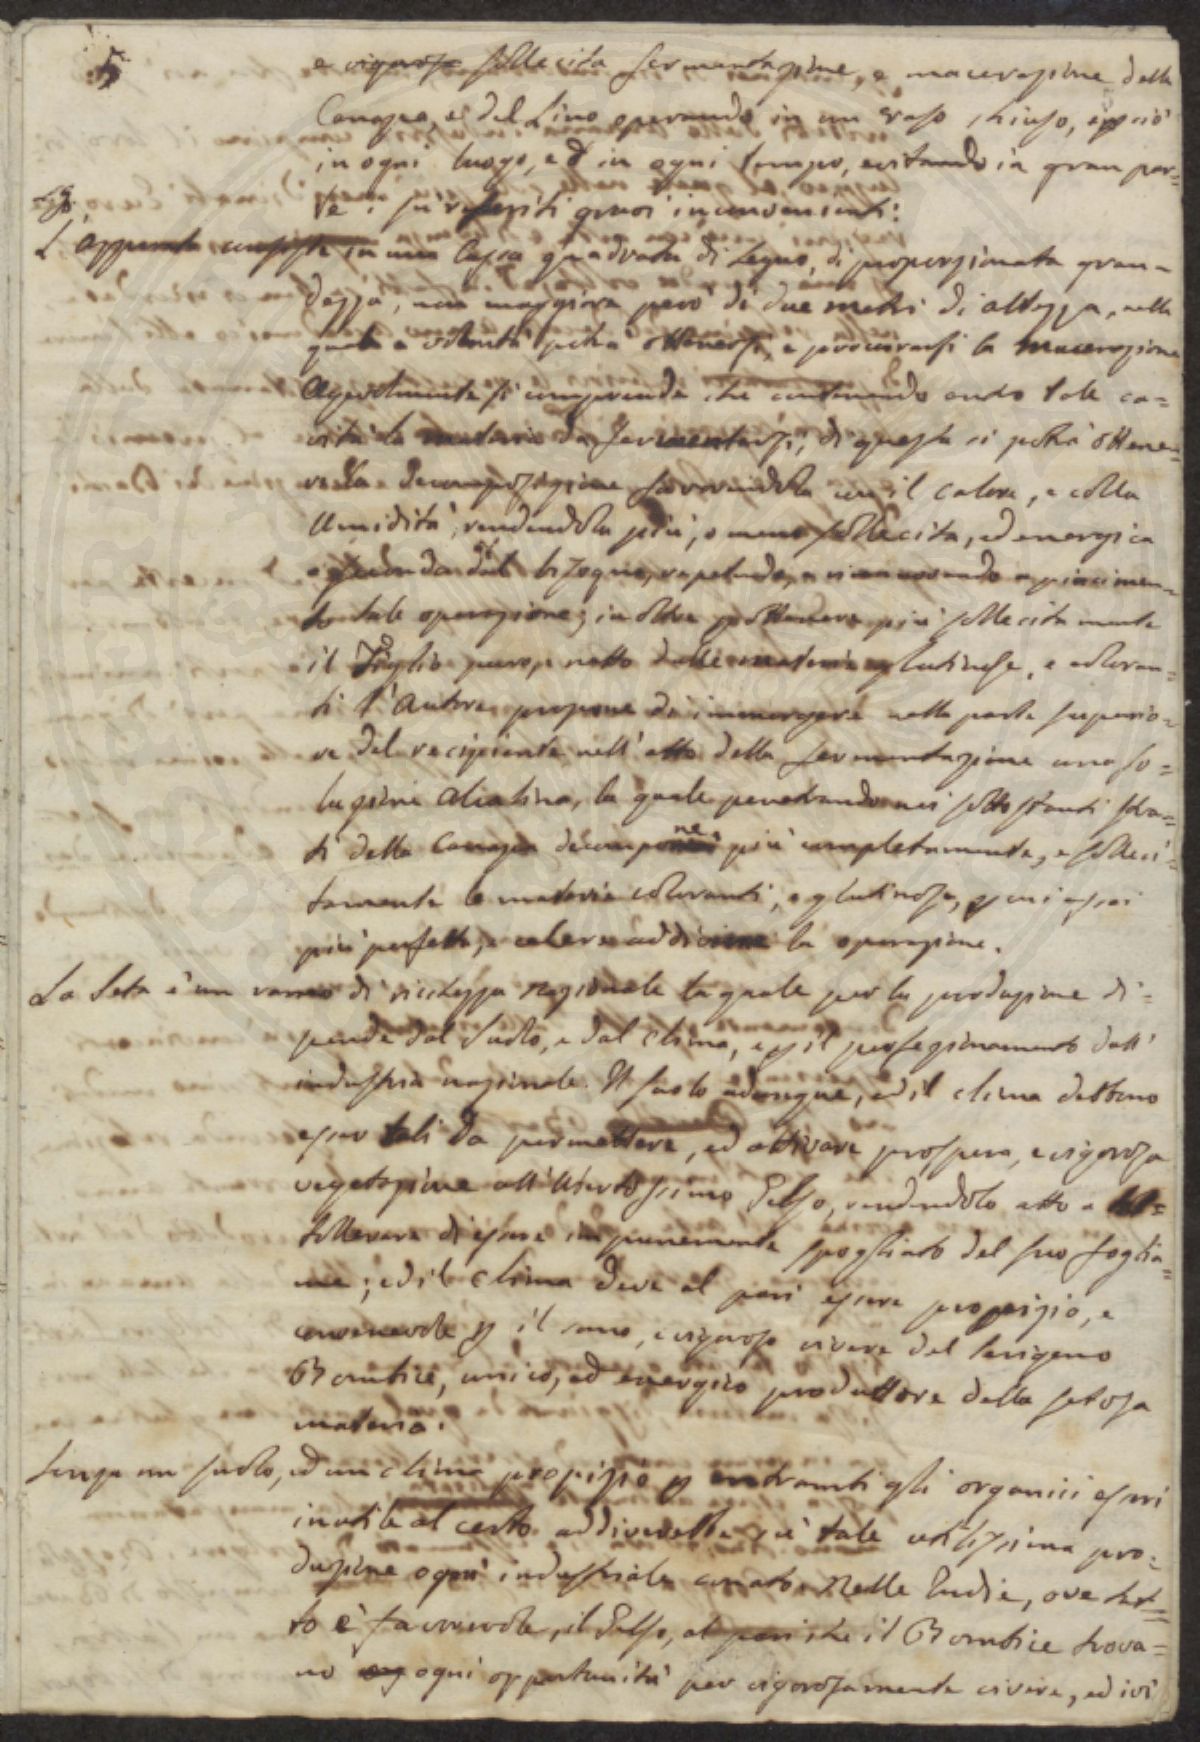 5
e vigorosa sollecita fermentazione, e macerazione della
Canapa, e del Lino operando in un vaso chiuso, epperciò
in ogni luogo, ed in ogni tempo, evitando in gran par=
te i su riferiti gravi inconvenienti:
L'apparato consiste in una Cassa quadrata di Legno, di proporzionata gran=
dezza, non maggiore però di due metri di altezza, nella
quale a volontà potrà ottenersi, e procurarsi la macerazione
Agevolmente si comprende che contenendo tale ca=
vità la materia da fermentarsi, di questa si potrà ottene=
re la decomposizione favorendola con il calore, e colla
Umidità, rendendola più, o meno sollecita, ed energica
a seconda del bisogno, ripetendo, e rinnovando a piacimen=
to tale operazione; inoltre per ottenere più sollecitamente
il Tiglio puro, e netto dalle materie glutinose, e coloran=
ti l'Autore propone di immergere nella parte superio=
re del recipiente nell'atto della fermentazione una so=
luzione alcalina, la quale penetrando nei sottostanti stra=
ti della Canapa decompone più completamente, e solleci=
tamente le materie coloranti, e glutinose, e quindi assai
più perfetta, e celere addiviene la operazione.
La Seta è un ramo di ricchezza nazionale la quale per la produzione di=
pende dal suolo, e dal clima, e per il perfezionamento dall'
industria nazionale. Il suolo adunque, ed il clima debbono
esser tali da permettere, ed attivare prospera, e vigorosa
vegetazione all'utilissimo Gelso, rendendolo atto a
tollerare di essere impunemente spogliato del suo foglia=
me; ed il clima deve al pari essere propizio, e
convenevole per il sano, e vigoroso vivere del serigeno
Bombice, unico, ed energico produttore della setosa
materia.
Senza un suolo, ed un clima propizio per entrambi gli organici esseri
inutile al certo addiverebbe su tale utilissima pro=
duzione ogni industriale conato. Nelle Indie, ove tut=
to è favorevole, il Gelso, al pari che il Bombice trova=
no ogni opportunità per vigorosamente vivere, ed ivi